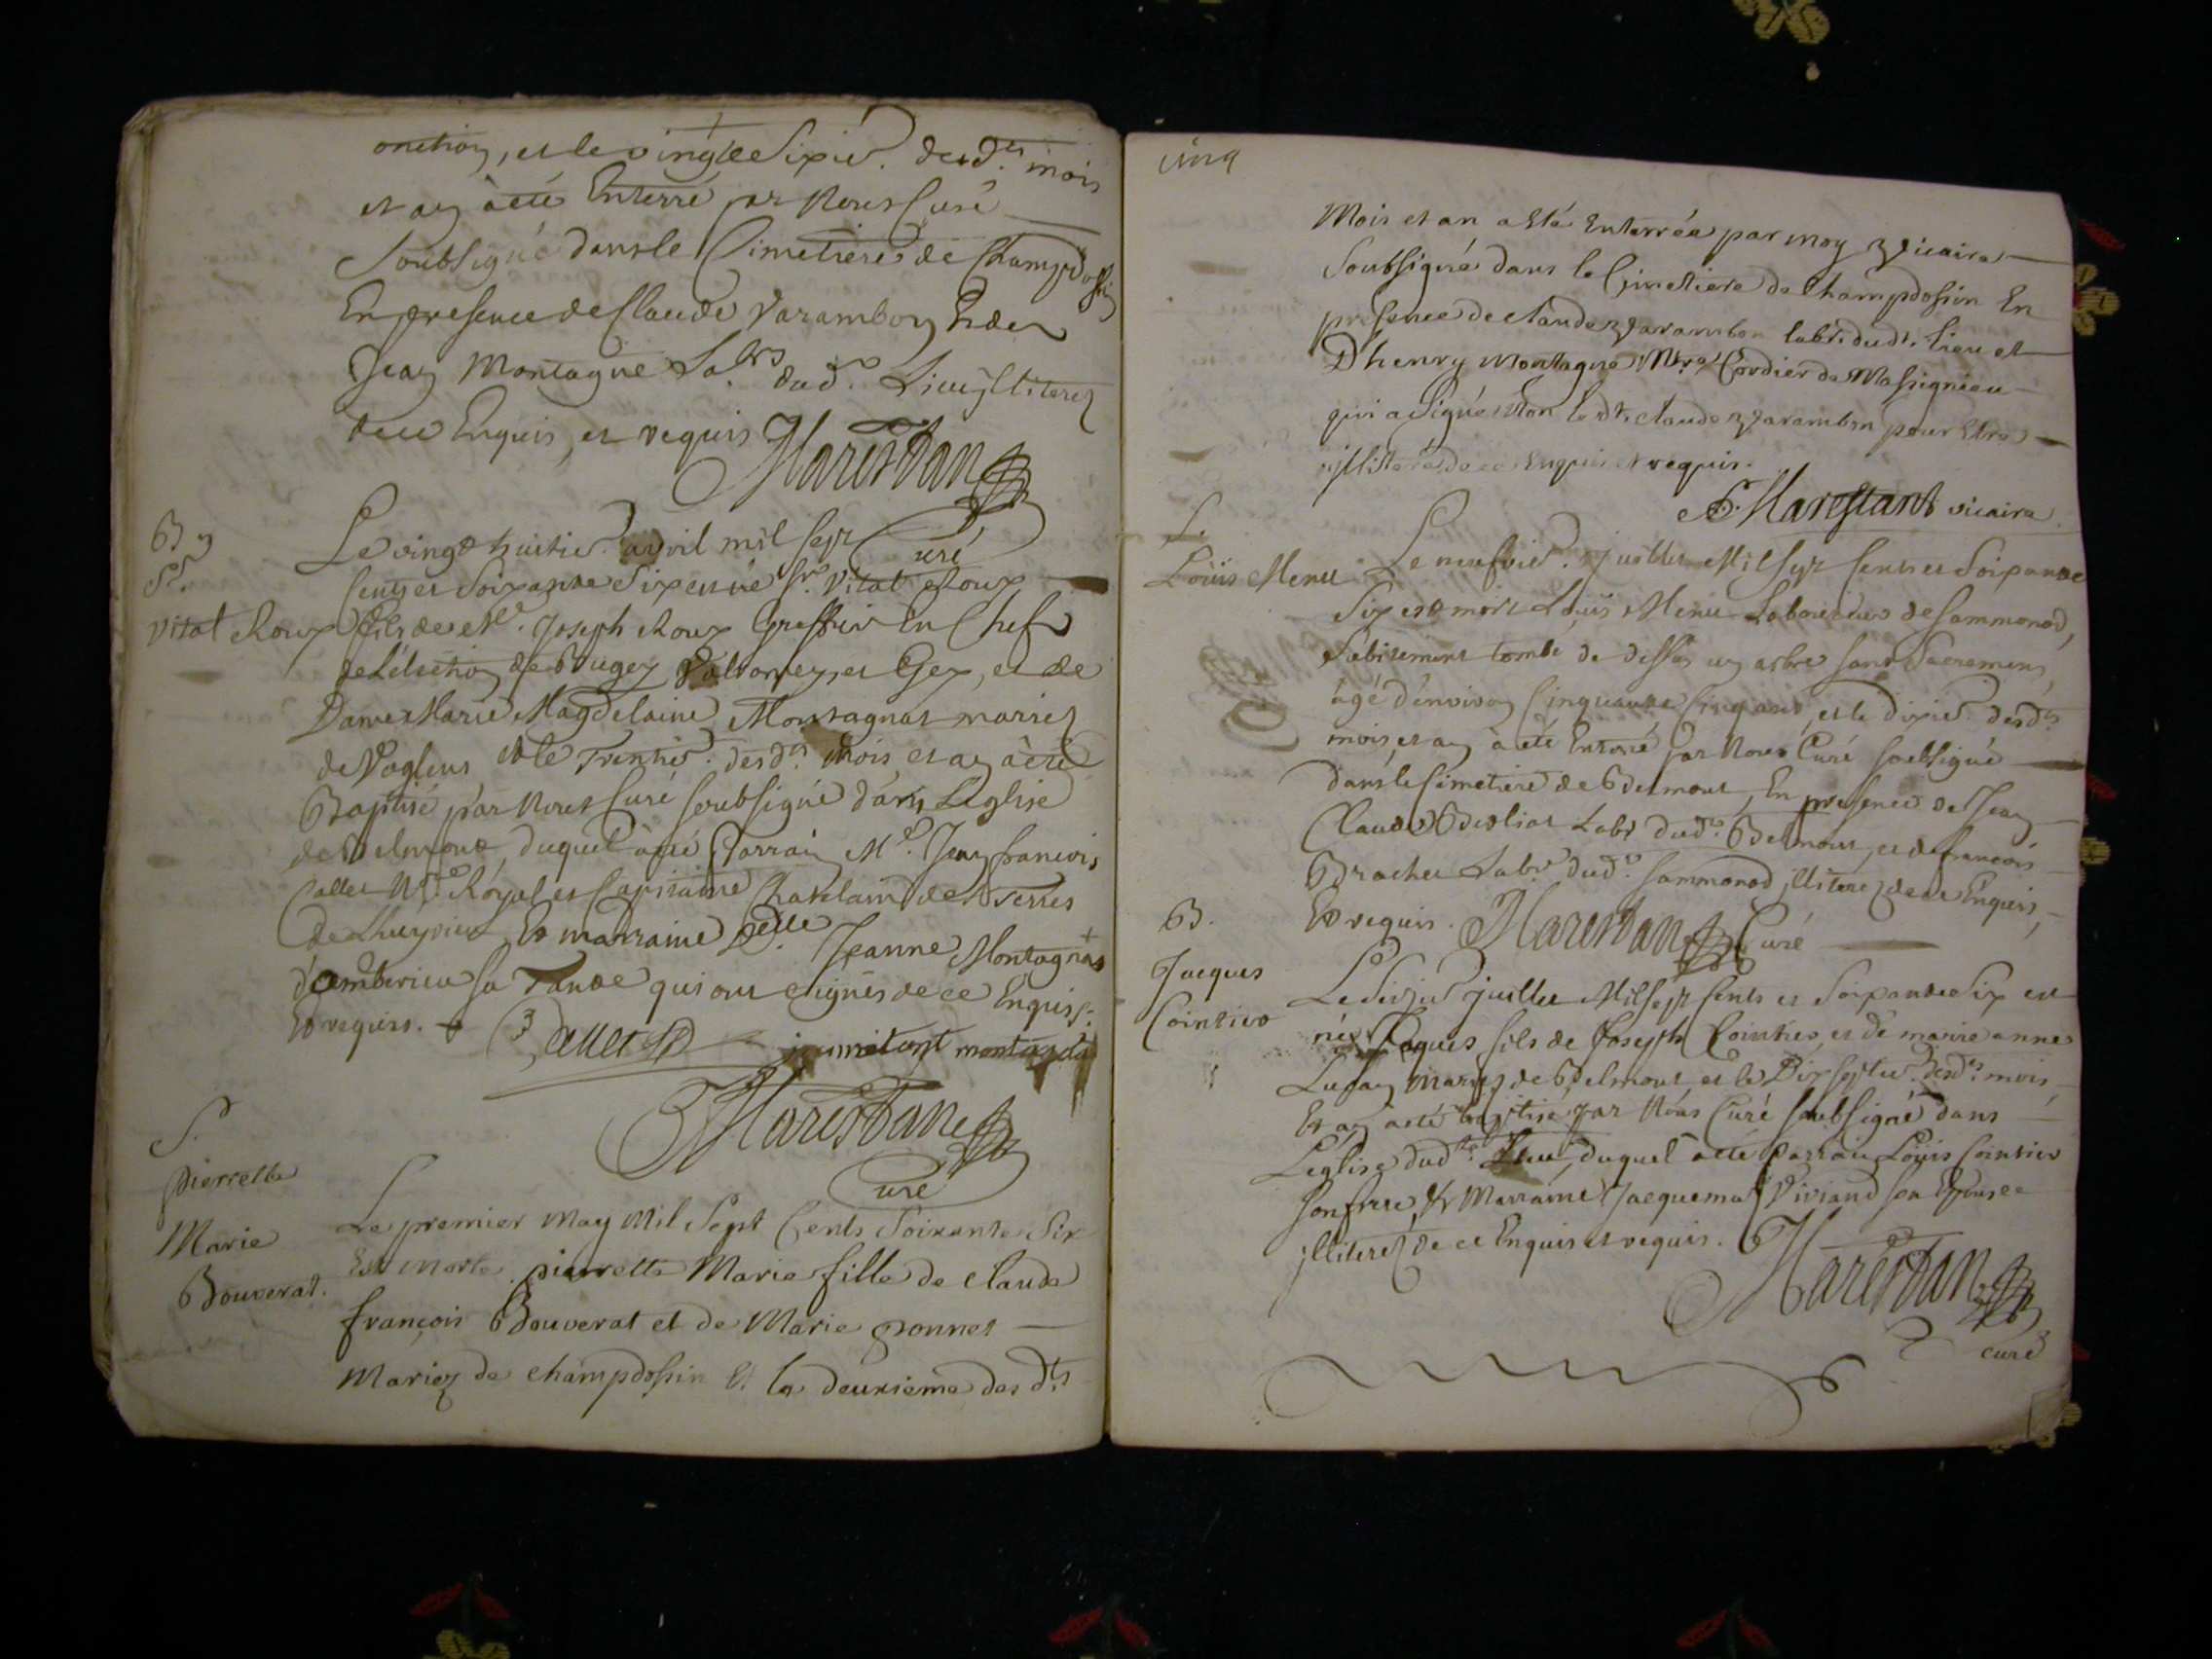 onction, et le vingt Sixie. desdts. mois
et an à été Enterré par Nous Curé
Soubsigné dans le Cimetiere de Champdossin
En presence de Claude Varambon Et de
Jean Montagne Labrs dudt. Lieu illiterez
de ce Enquis, et requis
Marestan
Curé
B
Sr.
Vital Roux
Le vingt huitie. avril mil sept
Cents et Soixante Six est né Sr. Vital Roux
fils de Me. Joseph Roux Greffier En Chef
de L'élection de Bugey Valromey, et Gex, et de
Dame Marie Magdelaine Montagnat mariez
de Voglens et le Trentie. desdts. mois et an à été
Baptisé par Nous Curé soubsigné dans L'eglise
de Belmont, duquel à été Parrain Me. Jean francois
Callet Nre. Royal et Capitaine Chatelain des Terres
de Lhuyrieu Et marraine Delle. Jeanne Montagnat
d'ambérieu sa Tante qui ont signés de ce Enquis
Et requis.
Callet
montagnat
Marestan
Curé
S.
pierrette
Marie
Bouverat.
Le premier May Mil Sept Cents Soixante Six
Est Morte pierrette Marie fille de Claude
françois Bouverat et de Marie ponnet
Mariez de Champdossin Et le deuxième des dts
cinq
Mois et an a Eté Enterrée par moy Vicaire
Soubsigné dans le Cimetiere de Champdossin En
presence de Claude Varambon labr. dudt. lieu et
D'henry Montagne Mtre Cordier de Massignieu
qui a Signé Non le dt. Claude Varambon pour Etre
illiteré de ce Enquis et requis.
Marestant vicaire
Louis Menu
Le neufvie. juillet Mil Sept Cents et Soixante
Six est mort Louis Menu Laboureur de Sammonod,
Subitement tombé de dessus un arbre sans Sacremens,
âgé d'environ Cinquante Cinq ans, et le dixie. desdts.
mois et an à été Enterré par Nous Curé soubsigné
dans le Cimetiere de Belmont, En presence de Jean
Claude Labr. dudt. Belmont, et de francois
Brachet Labr. dudt. Sammonod illiterez de ce Enquis,
Et requis. Marestan Curé
B.
Jacques
Cointier
Le juillet Mil Sept Cents et Soixante Six est
né Jaques fils de Joseph Cointier, et de marie anne
mariez de Belmont, et le Dix Septie. desdts. mois
Et an à été baptisé par Nous Curé soubsigné dans
L'eglise dudt. Lieu, duquel à été parrain Louis Cointier
son frere, Et Marraine Jacquema Viviand son Epouse
illiterez de ce Enquis et requis.
Marestan
curé